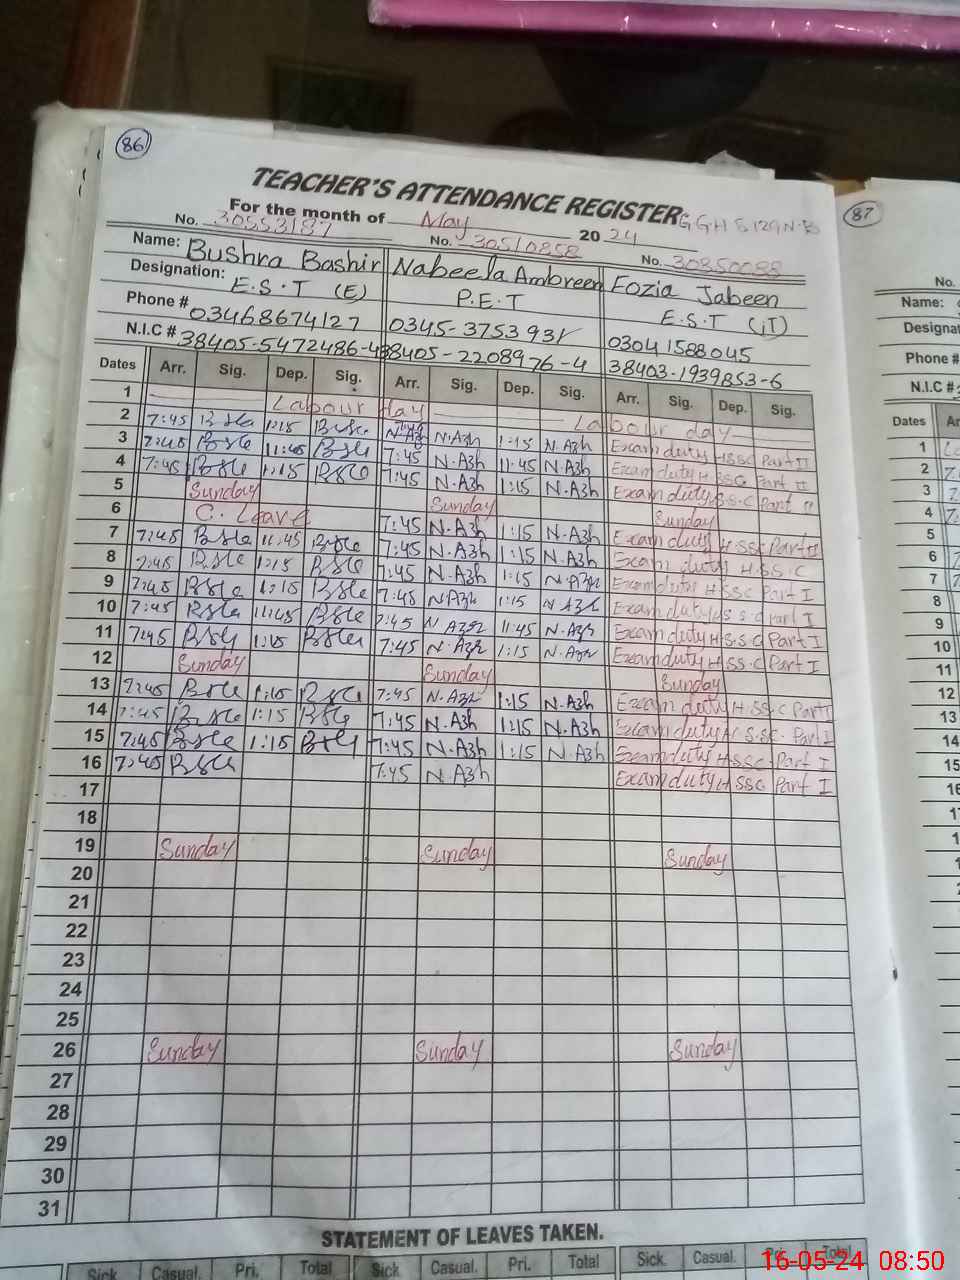 86
TEACHER'S ATTENDANCE REGISTER G.G.H.S 129 N.B
87
For the month of May 2024
No. 30553187 No. 30510858 No. 30350088
Name: Bushra Bashir Nabeela Ambreen Fozia Jabeen
Designation: E.S.T (E) P.E.T E.S.T (IT)
Phone # 03468674127 0345-3753931 03041588045
N.I.C # 38405-5472486-4 38405-2208976-4 38403-1939853-6
Dates Arr. Sig. Dep. Sig. Arr. Sig. Dep. Sig. Arr. Sig. Dep. Sig.
1 Labour day Labour day
2 7:45 1:15 N.Azh 1:15 N.Azh Exam duty HSSC Part II
3 7:45 11:45 7:45 N.Azh 11:45 N.Azh Exam duty HSSC Part II
4 7:45 1:15 7:45 N.Azh 1:15 N.Azh Exam duty S.S.C Part II
5 Sunday Sunday Sunday
6 C. Leave 7:45 N.Azh 1:15 N.Azh Exam duty H.SSC Part II
7 7:45 11:45 7:45 N.Azh 1:15 N.Azh Exam duty H.S.S.C
8 7:45 1:15 7:45 N.Azh 1:15 N.Azh Exam duty HSSC Part I
9 7:45 1:15 7:45 N.Azh 1:15 N.Azh Exam duty H.S.S.C Part I
10 7:45 11:45 7:45 N.Azh 11:45 N.Azh Exam duty H.S.S.C Part I
11 7:45 1:15 7:45 N.Azh 1:15 N.Azh Exam duty H.SS.C Part I
12 Sunday Sunday Sunday
13 7:45 1:15 7:45 N.Azh 1:15 N.Azh Exam duty H.SS.C Part I
14 7:45 1:15 7:45 N.Azh 1:15 N.Azh Exam duty H.S.S.C. Part I
15 7:45 1:15 7:45 N.Azh 1:15 N.Azh Exam duty H.SSC Part I
16 7:45 7:45 N.Azh Exam duty H SSC Part I
17
18
19 Sunday Sunday Sunday
20
21
22
23
24
25
26 Sunday Sunday Sunday
27
28
29
30
31
STATEMENT OF LEAVES TAKEN.
Sick Casual. Pri. Total Sick Casual. Pri. Total Sick. Casual. Pri. Total
No.
Name:
Designat
Phone #
N.I.C #
Dates A
1
2
3
4
5
6
7
8
9
10
11
12
13
14
15
16
16-05-24 08:50